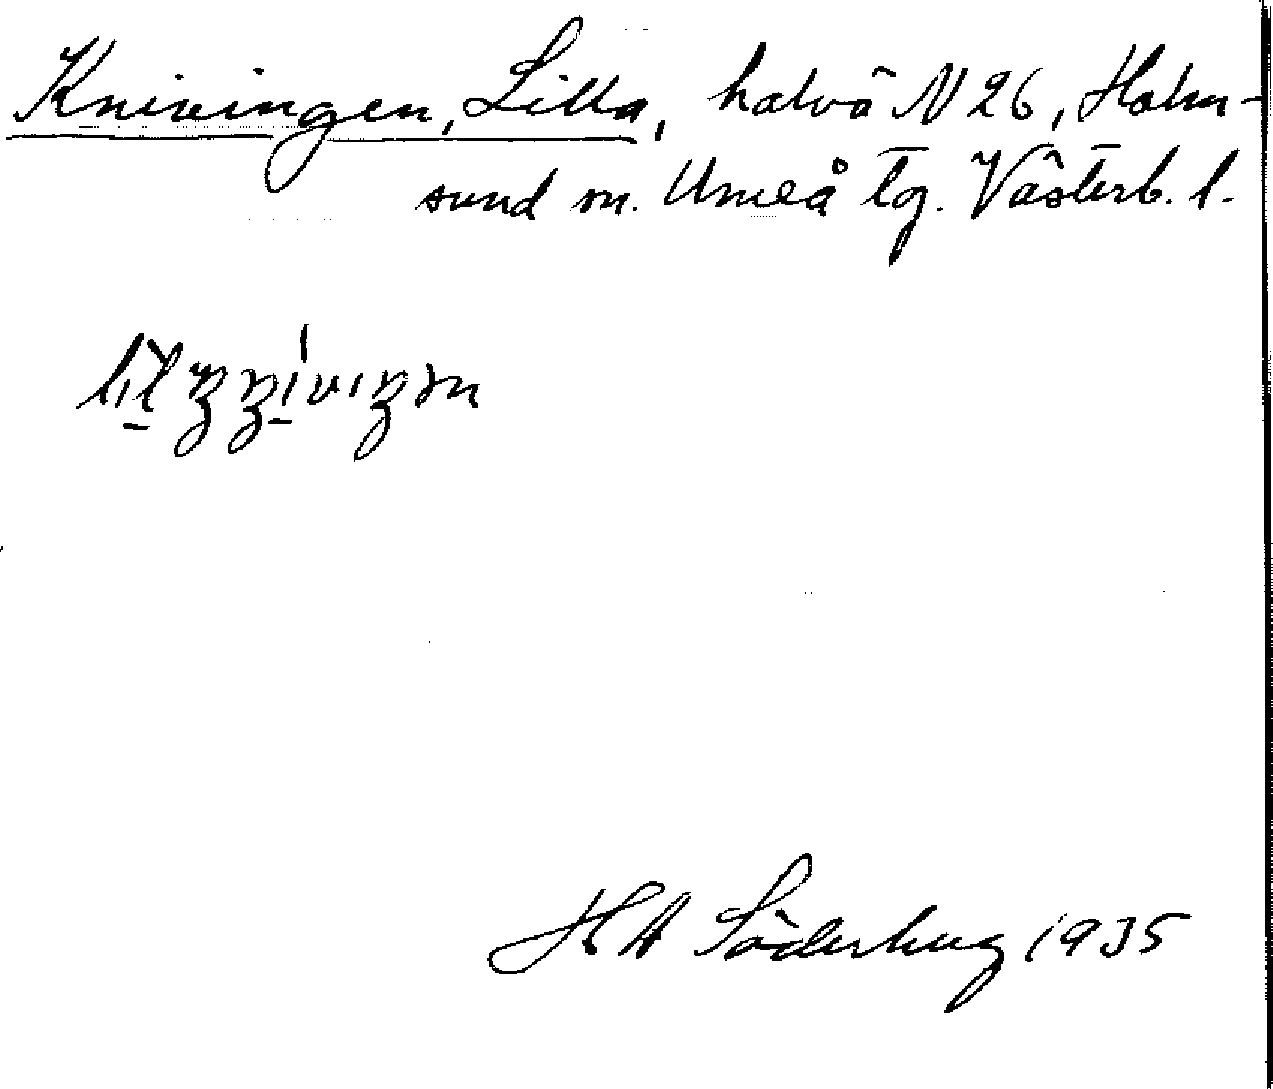 Knivingen, Lilla, halvö N 26, Holm-
sund sn. Umeå tg. Västerb. l.
H A Söderberg 1935